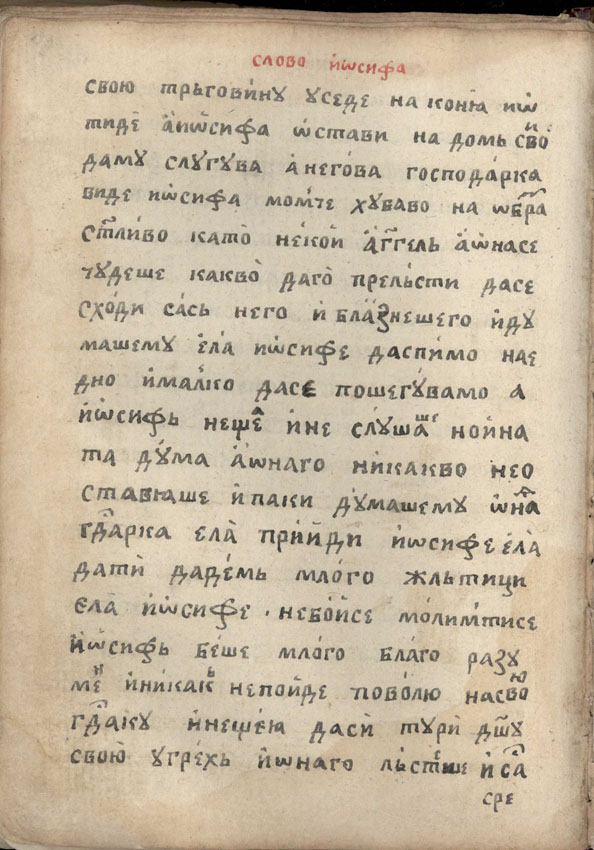 слово їѡсифа
свою трьговинꙋ ꙋседе на конꙗ иѿ
тидѐ а҆иѡ҆сифа ѡ҆стави на домь свои̑
дамꙋ слꙋгꙋва а҆негова господа́рка
виде иѡ҆сифа момче хꙋбаво на ѡ҆браⷥ
стⷭливо като̀ некои а҆гг҃ель а҆ѡ҆насе
чꙋдеше какво̀ даго̀ прельсти дасе
сходи сась него и҆ блазнешего и҆дꙋ
машемꙋ е҆ла̀ иѡ҆сифе даспимо нае
дно и҆малко дасе пошегꙋвамо а
и҆ѡ҆сифь нещеⷲ҇ и҆не слꙋшаⷲ҇е но и҆на
та дꙋма а҆ѡ҆наго никакво нео
ставꙗше и҆ паки дꙋмашемꙋ ѡ҆наⷥ
гдⷭарка ела̀ прии҆ди иѡ҆сифе е҆ла̀
дати дадемь млого жльтици
ела и҆ѡ҆сифе · небои҆се молимтисе
и҆ѡ҆сифь беше млого благо разꙋ
меⷩ҇ и҆никакь непои҆де поволю насвою
гдⷭакꙋ и҆нещею даси тꙋри дш҃ꙋ
свою ꙋгрехь и҆ѡ҆наго льстеⷲ҇ше и҆ саⷭ
сре